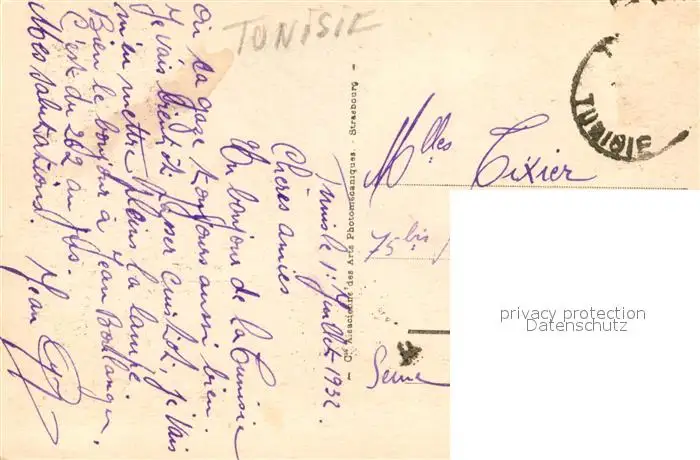 TUNISIE
TUNISIE
Tunis le 1 Juillet 1932.
Chères amies
Un bonjour de la Tunisie
où ça gaze toujours aussi bien.
Je vais bientôt passer cuistot, je vais
m'en mettre plein la lampe.
Bien le bonjour à Jean Boulanger,
C'est du 262 au jus.
Mes salutations. Jean
Cie Alsacienne des Arts Photomécaniques. - Strasbourg -
Mlles Tixier
75 bis
Seine
privacy protection
Datenschutz